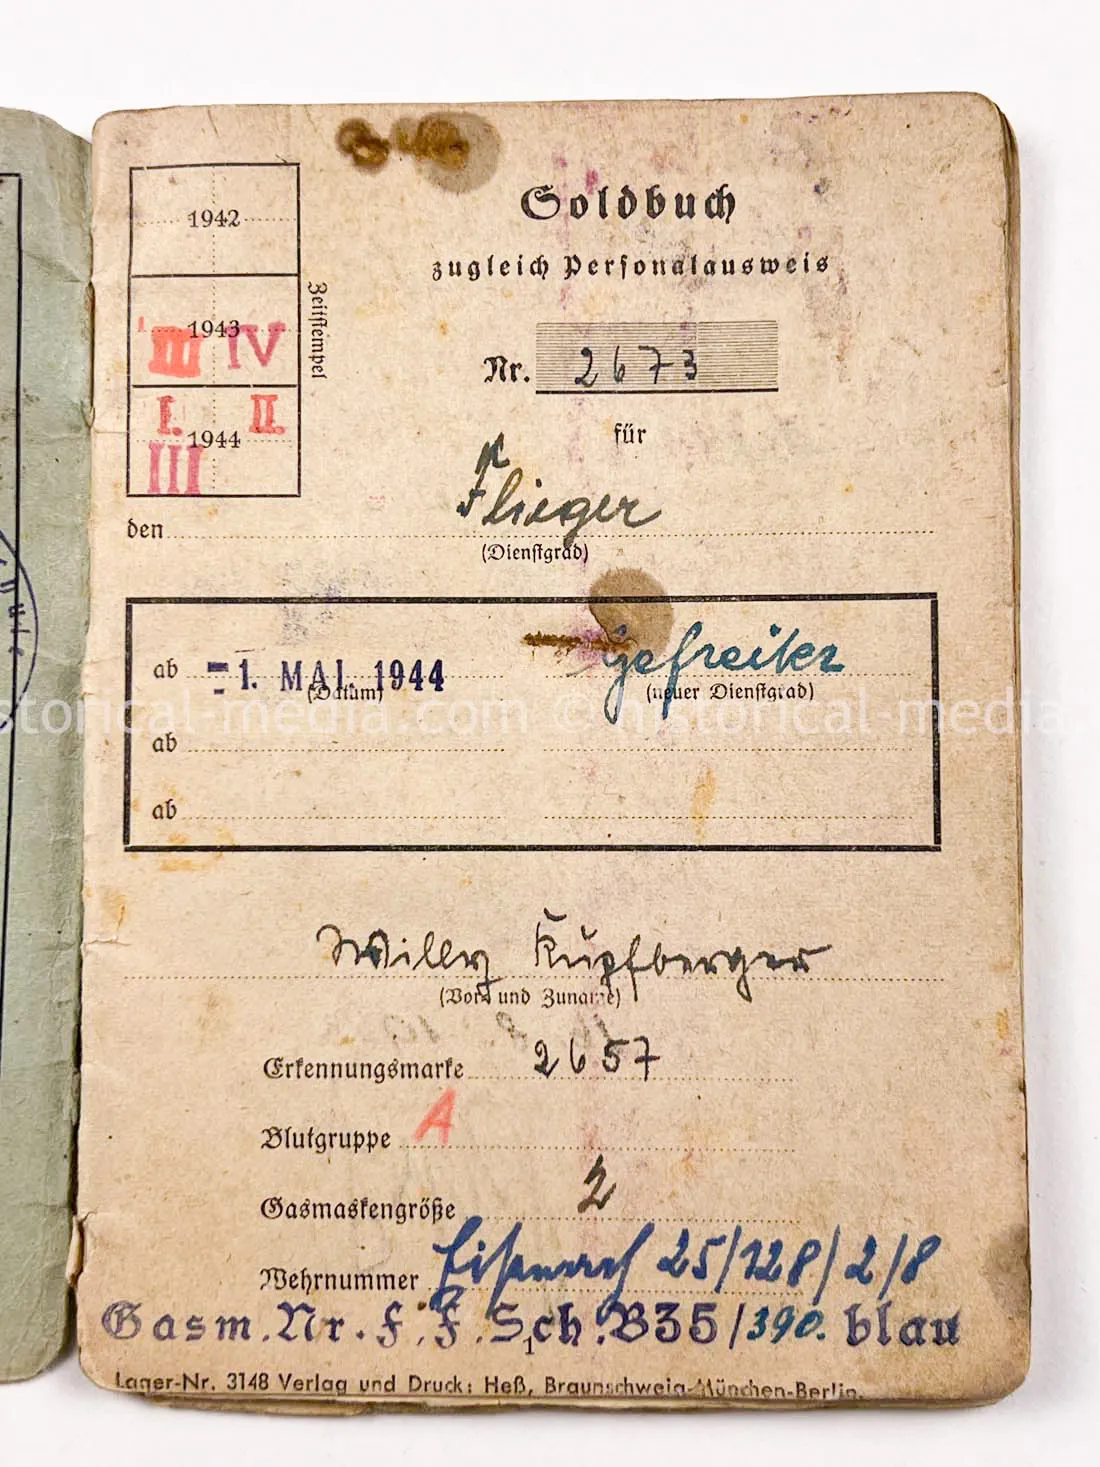 1942
1943
III IV
I. II.
1944
III
Zeitstempel
Soldbuch
zugleich Personalausweis
Nr. 2673
für
den Flieger
(Dienstgrad)
ab -1. MAI. 1944 Gefreiter
(Datum) (neuer Dienstgrad)
historical-media.com © historical-media.
ab
ab
Willy Kupfberger
(Vor- und Zuname)
Erkennungsmarke 2657
Blutgruppe A
Gasmaskengröße 2
Wehrnummer Eisenach 25/128/2/8
Gasm.Nr.F.F.Sch.B35/390. blau
1
Lager-Nr. 3148 Verlag und Druck: Heß, Braunschweig-München-Berlin.